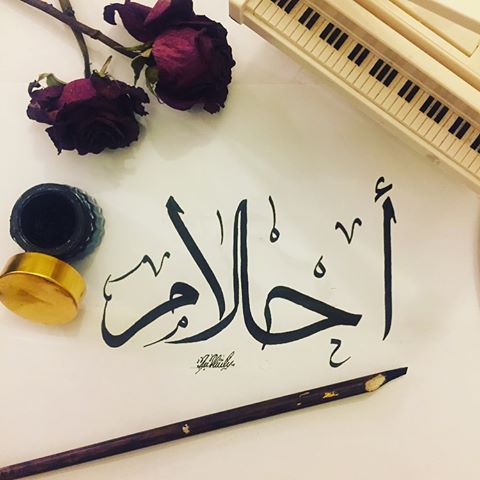 أحلام